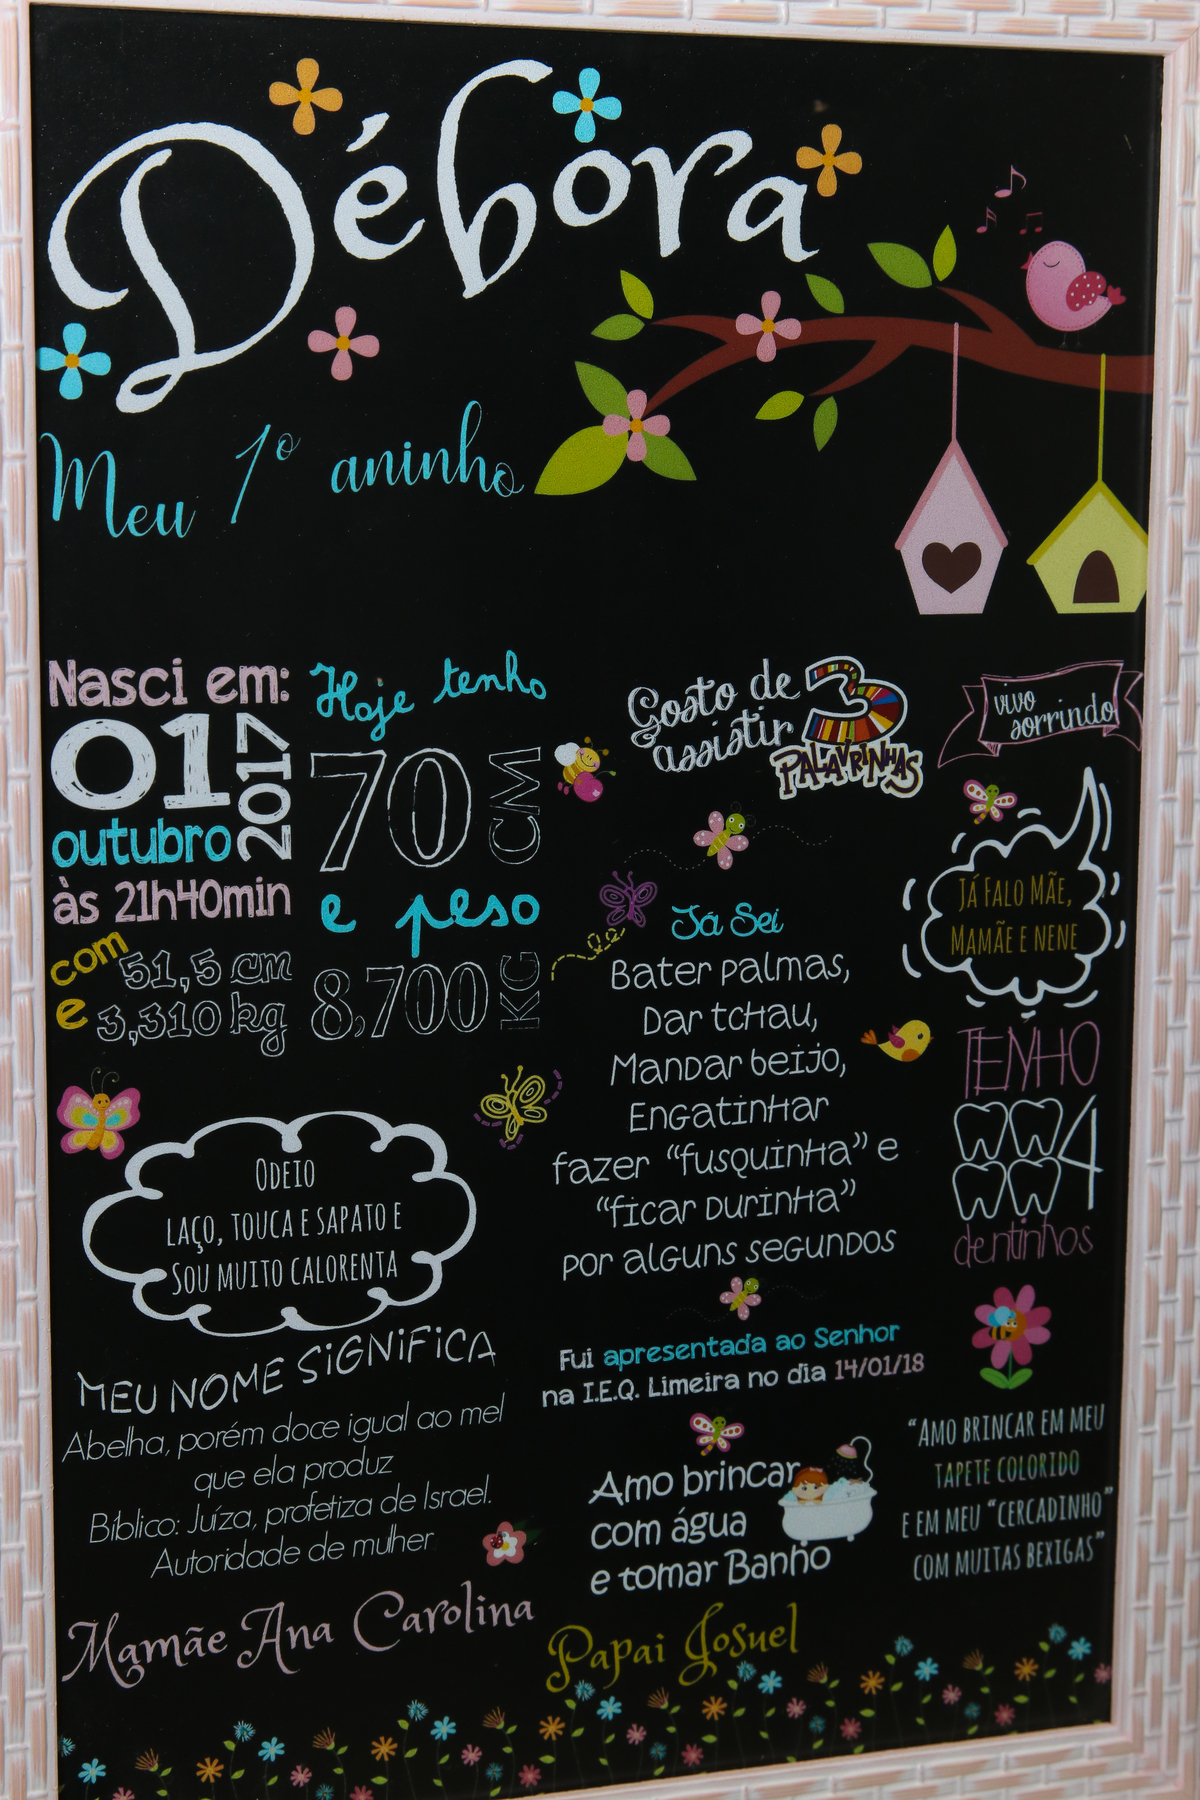 Débora
Meu 1º aninho
Nasci em:
01
outubro
2017
às 21h40min
com 51,5 cm
e 3,310 kg
Hoje tenho
70 CM
e peso
8,700 KG
Gosto de
assistir
3
PALAVRINHAS
vivo
sorrindo
Já Falo Mãe,
Mamãe e nene
Já Sei
Bater palmas,
Dar tchau,
Mandar beijo,
Engatinhar
fazer “fusquinha” e
“ficar durinha”
por alguns segundos
TENHO
4
dentinhos
Odeio
laço, touca e sapato e
Sou muito calorenta
MEU NOME SiGNiFiCA
Abelha, porém doce igual ao mel
que ela produz
Bíblico: Juíza, profetiza de Israel.
Autoridade de mulher
Fui apresentada ao Senhor
na I.E.Q. Limeira no dia 14/01/18
Amo brincar
com água
e tomar Banho
“Amo brincar em meu
tapete colorido
e em meu “cercadinho”
com muitas bexigas”
Mamãe Ana Carolina
Papai Josuel